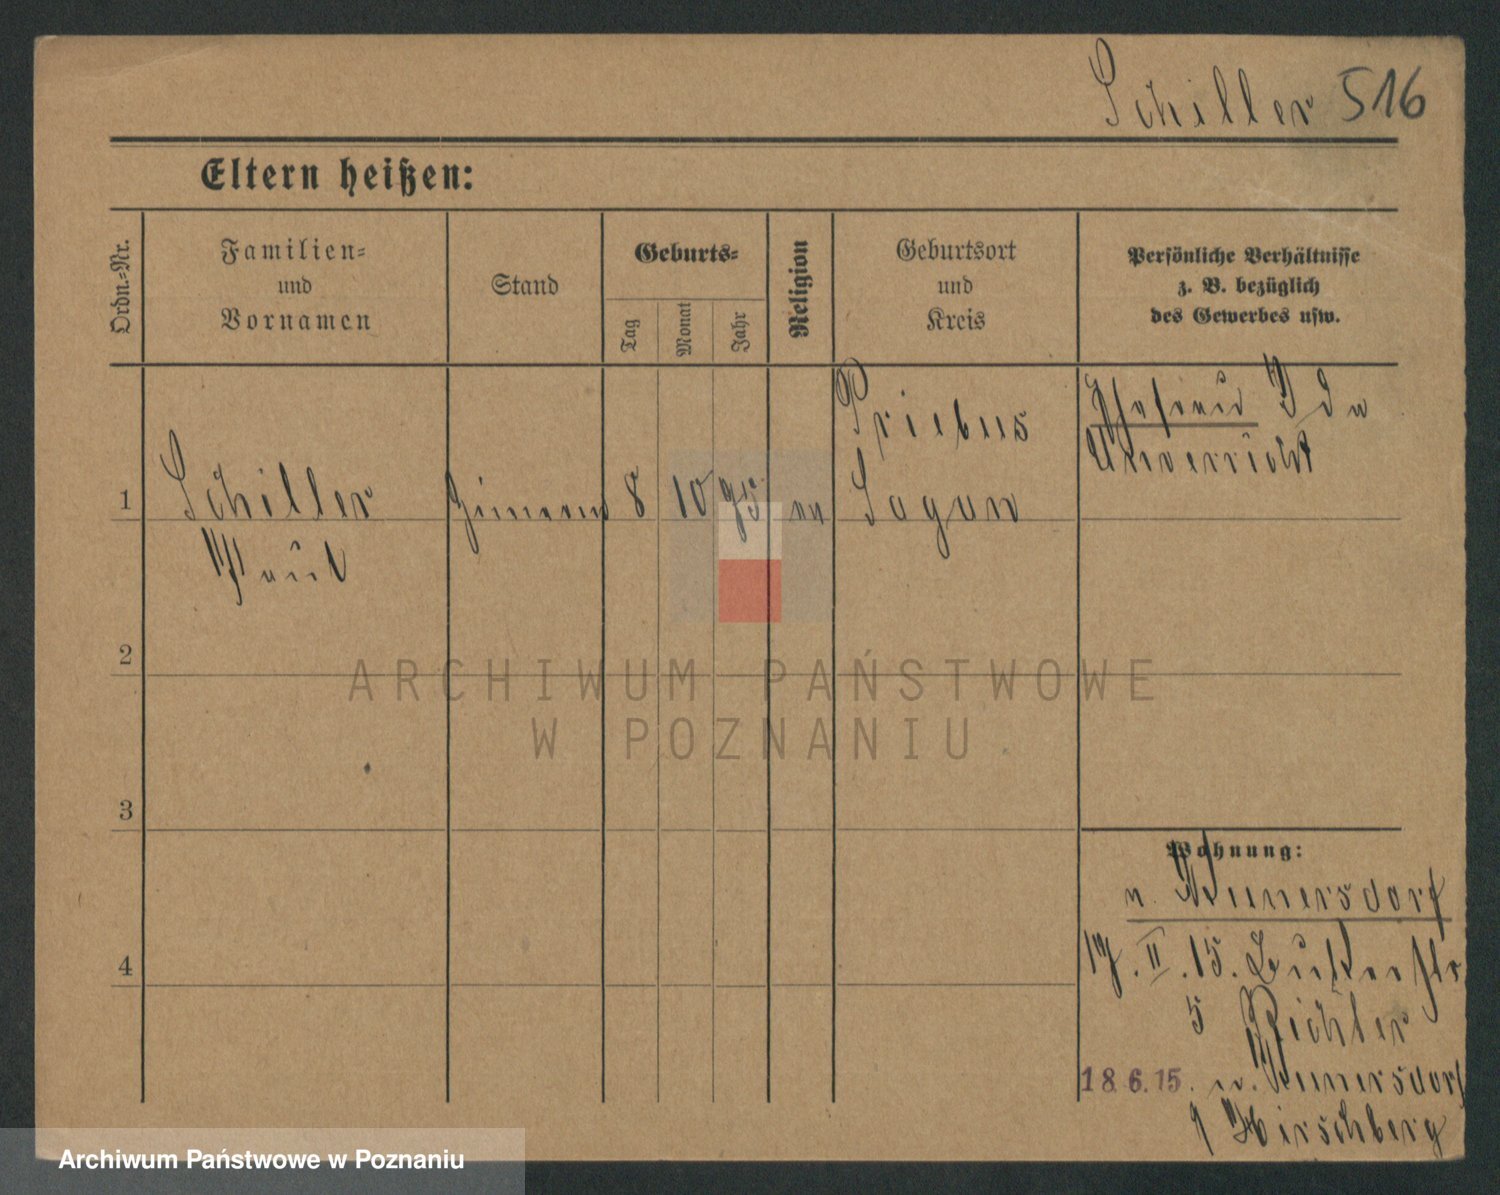 Schiller 516
Eltern heißen:
Ordn.-Nr.
Familien-
und
Vornamen
Stand
Geburts-
Tag
Monat
Jahr
Religion
Geburtsort
und
Kreis
Persönliche Verhältnisse
z. B. bezüglich
des Gewerbes usw.
1
Schiller
Paul
8
10
95
Priebus
Sagan
Ehefrau Ida
Unverricht
2
3
4
Wohnung:
n. Kunersdorf
17. II. 15.
5 Richter
18.6.15. n. Kunersdorf
Hirschberg
ARCHIWUM PAŃSTWOWE
W POZNANIU
Archiwum Państwowe w Poznaniu